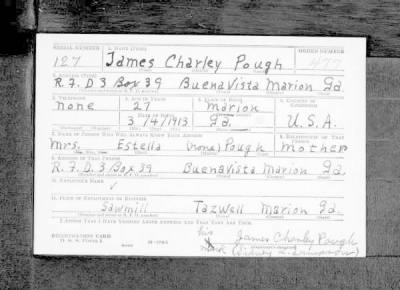 SERIAL NUMBER 1. NAME (Print) ORDER NUMBER
127 James Charley Pough 477
2. ADDRESS (Print)
R.F.D 3 Box 39 BuenaVista Marion Ga.
3. TELEPHONE 4. AGE IN YEARS 5. PLACE OF BIRTH 6. COUNTRY OF CITIZENSHIP
none 27 marion
DATE OF BIRTH
3/4/1913 Ga. U.S.A.
7. NAME OF PERSON WHO WILL ALWAYS KNOW YOUR ADDRESS 8. RELATIONSHIP OF THAT PERSON
Mrs. Estella (none) Pough mother
9. ADDRESS OF THAT PERSON
R.F.D. 3 Box 39 BuenaVista Marion Ga.
10. EMPLOYER'S NAME
11. PLACE OF EMPLOYMENT OR BUSINESS
Sawmill Tazwell Marion Ga.
I AFFIRM THAT I HAVE VERIFIED ABOVE ANSWERS AND THAT THEY ARE TRUE.
his
REGISTRATION CARD James Charley Pough
D. S. S. FORM 1 X
mark